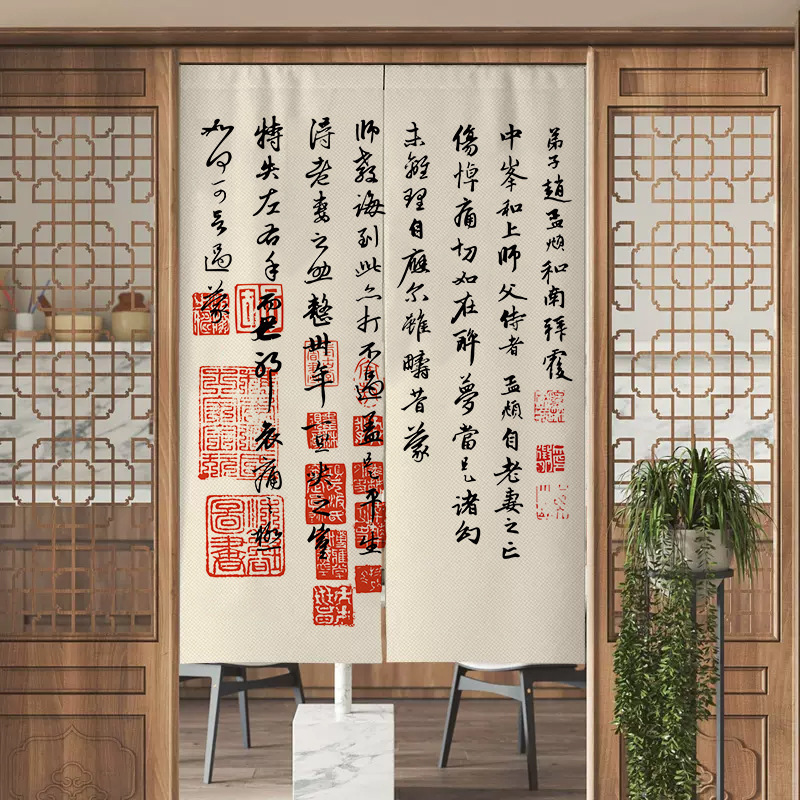 弟子趙孟頫和南拜覆
中峯和上師父侍者 孟頫自老妻之亡
傷悼痛切如在醉夢當是諸幻
未離理自應尔雖疇昔蒙
師教誨到此亦打不過蓋是平生
得老妻之助整卅年一旦哭之豈
特失左右手而已耶哀痛之極
如何可言過蒙